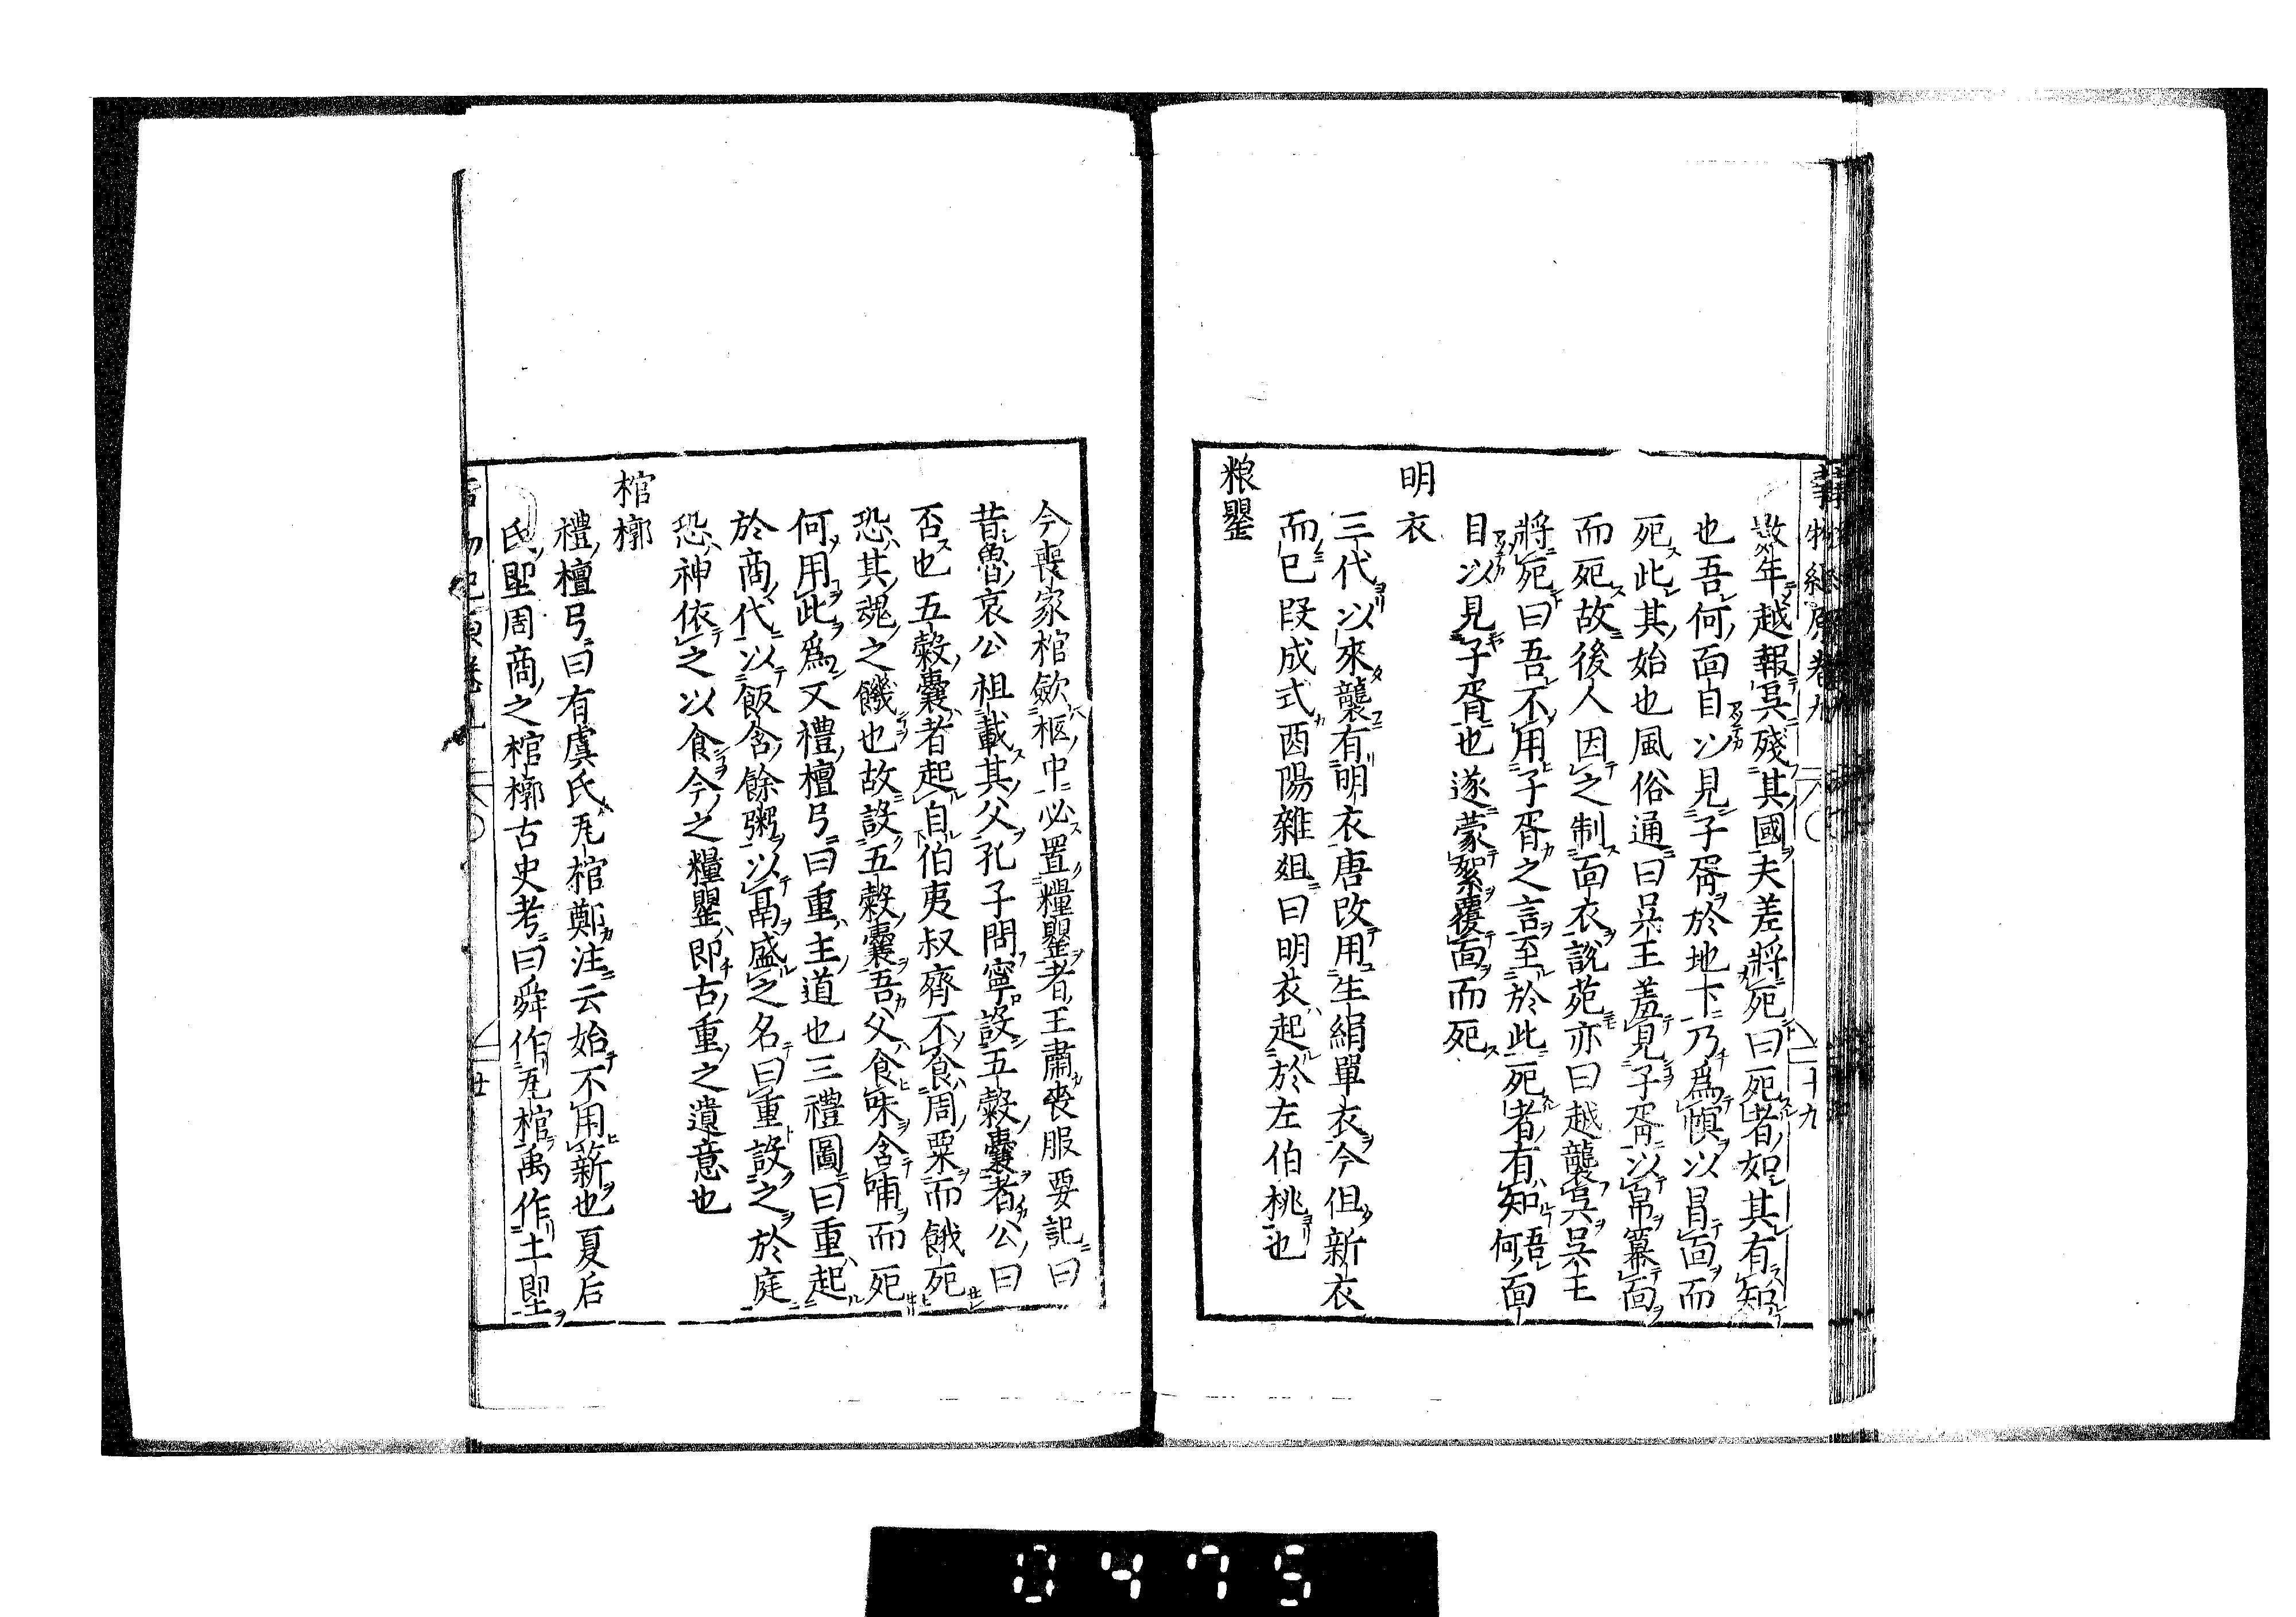 事物紀原卷九 十九
數年越報吳殘其國夫差將死曰死者如其有知
也吾何面目以見子胥於地下乃爲幎以冒面而
死此其始也風俗通曰吴王羞見子胥以帛羃面
而死故後人因之制面衣說苑亦曰越襲吳吴王
將死曰吾不用子胥之言至於此死者有知吾何面
目以見子胥也遂蒙絮覆面而死
明衣
三代以來襲有明衣唐改用生絹單衣今但新衣
而已段成式酉陽雜俎曰明衣起於左伯桃也
粮罌
今喪家棺斂柩中必置糧罌者王肅喪服要記曰
昔魯哀公祖載其父孔子問寧設五糓囊者公曰
否也五糓囊者起自伯夷叔齊不食周粟而餓死
恐其魂之饑也故設五糓囊吾父食味含哺而死
何用此爲又禮檀弓曰重主道也三禮圖曰重起
於商代以飯含餘粥以鬲盛之名曰重設之於庭
恐神依之以食今之糧罌即古重之遺意也
棺槨
禮檀弓曰有虞氏瓦棺鄭注云始不用薪也夏后
氏堲周商之棺槨古史考曰舜作瓦棺禹作土堲
廿
0475